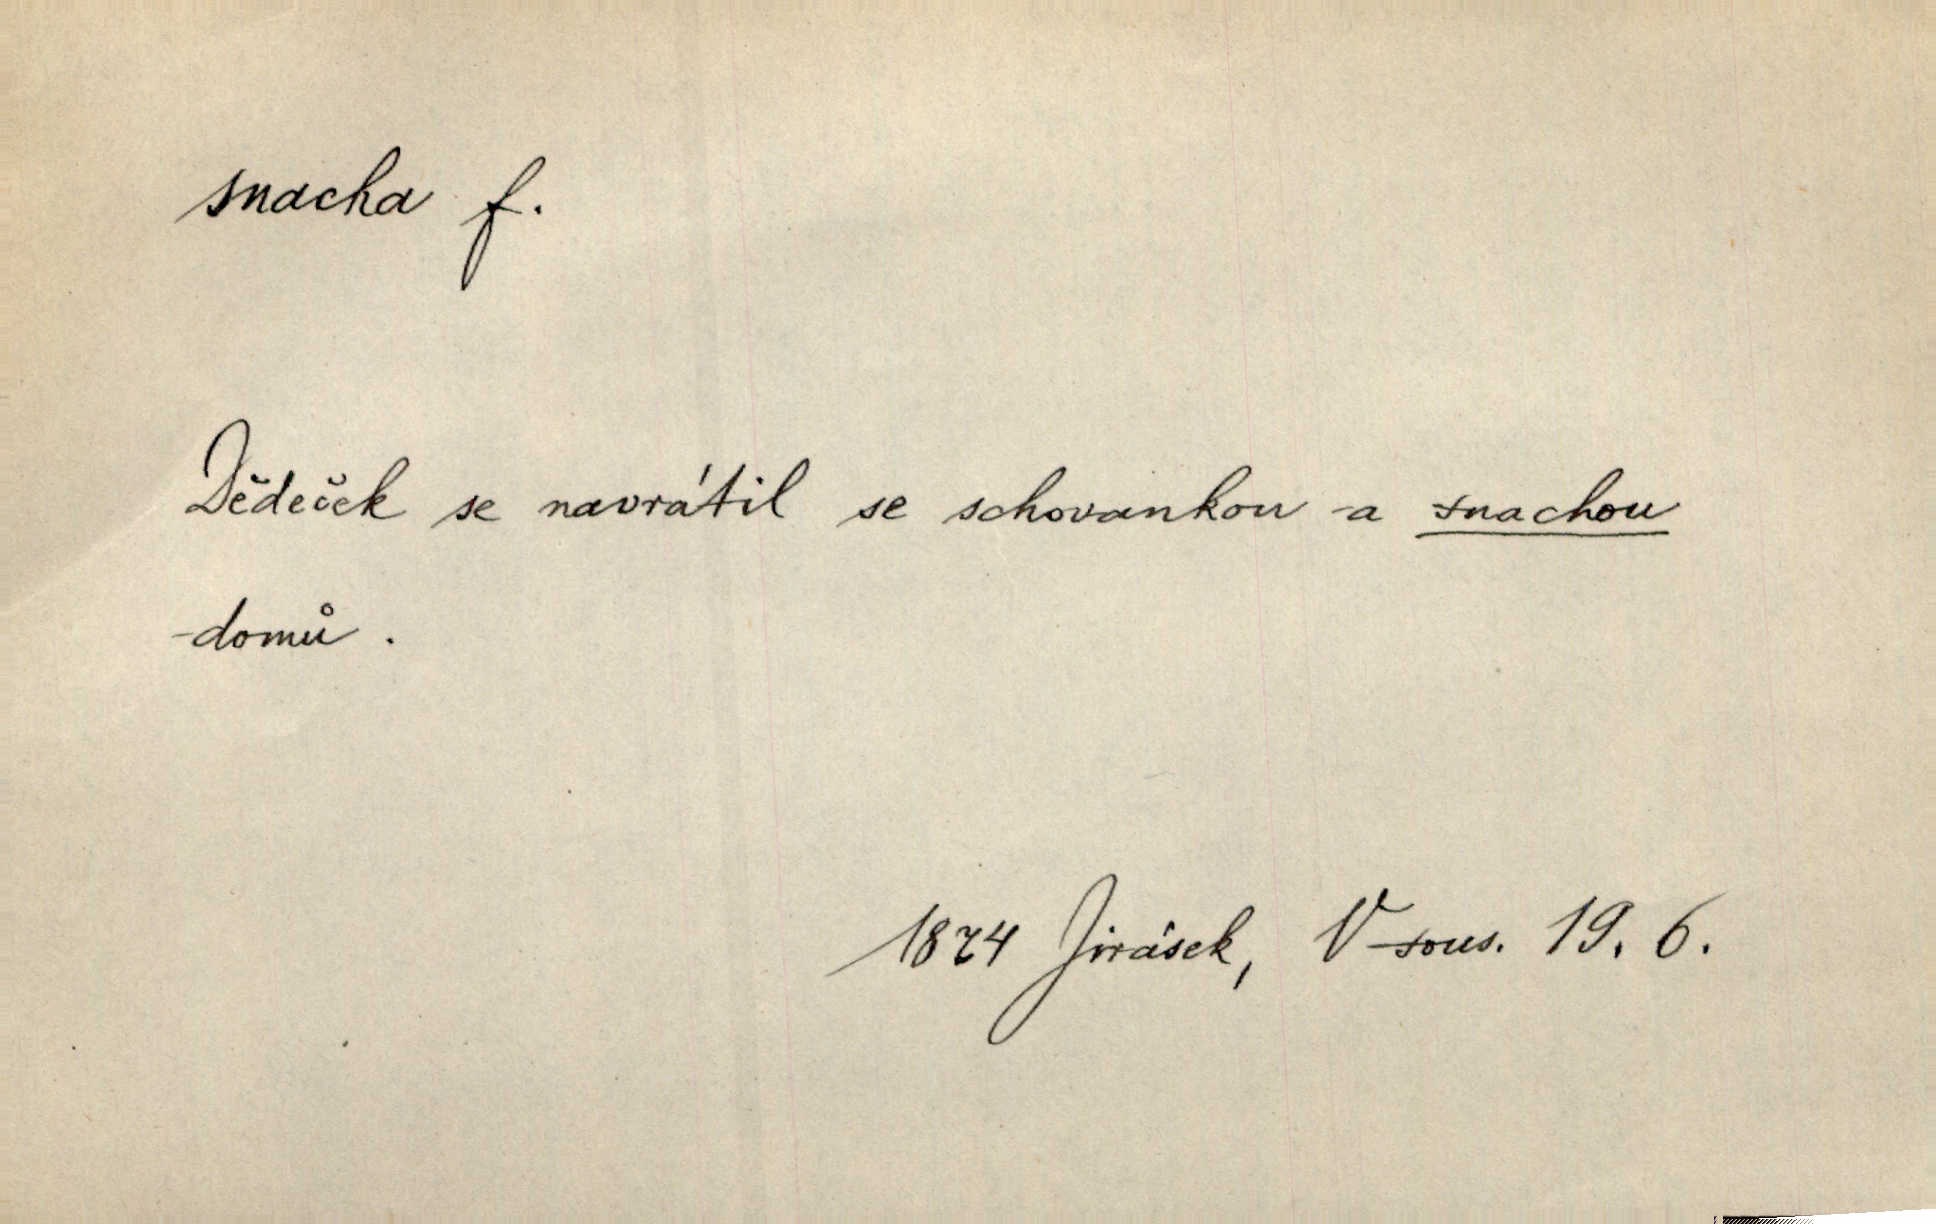 snacha f.
Dědeček se navrátil se schovankou a snachou
domů.
1874 Jirásek, V sous. 19. 6.